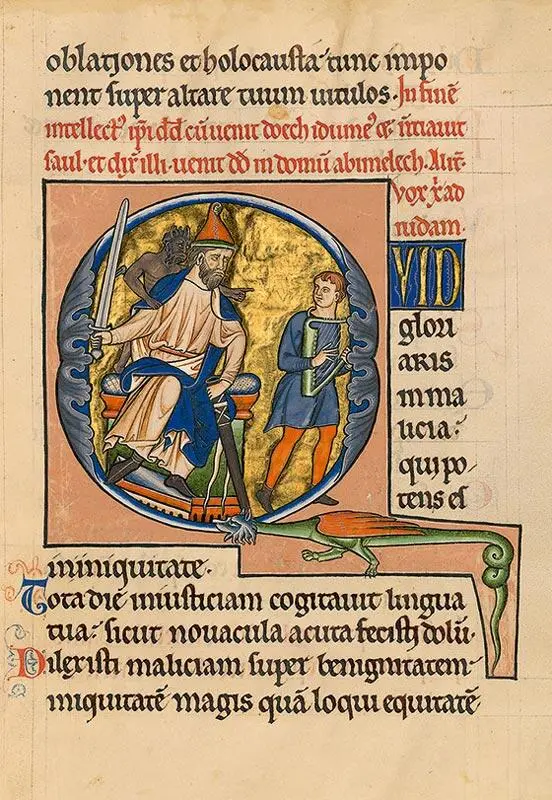 oblationes et holocausta tunc impo
nent super altare tuum uitulos. In finē
intellectꝰ ip̄i dd̄ cū uenit doech idumeꝰ ⁊ n̄tiauit
saul et dix̄ illi uenit dd̄ in domū abimelech. Alit̄
vox x̄ ad
iudam.
QVID
glori
aris
in ma
licia:
qui po
tens es
in iniquitate.
Tota die iniusticiam cogitauit lingua
tua: sicut nouacula acuta fecisti dolū.
Dilexisti maliciam super benignitatem
iniquitatē magis quā loqui equitatē